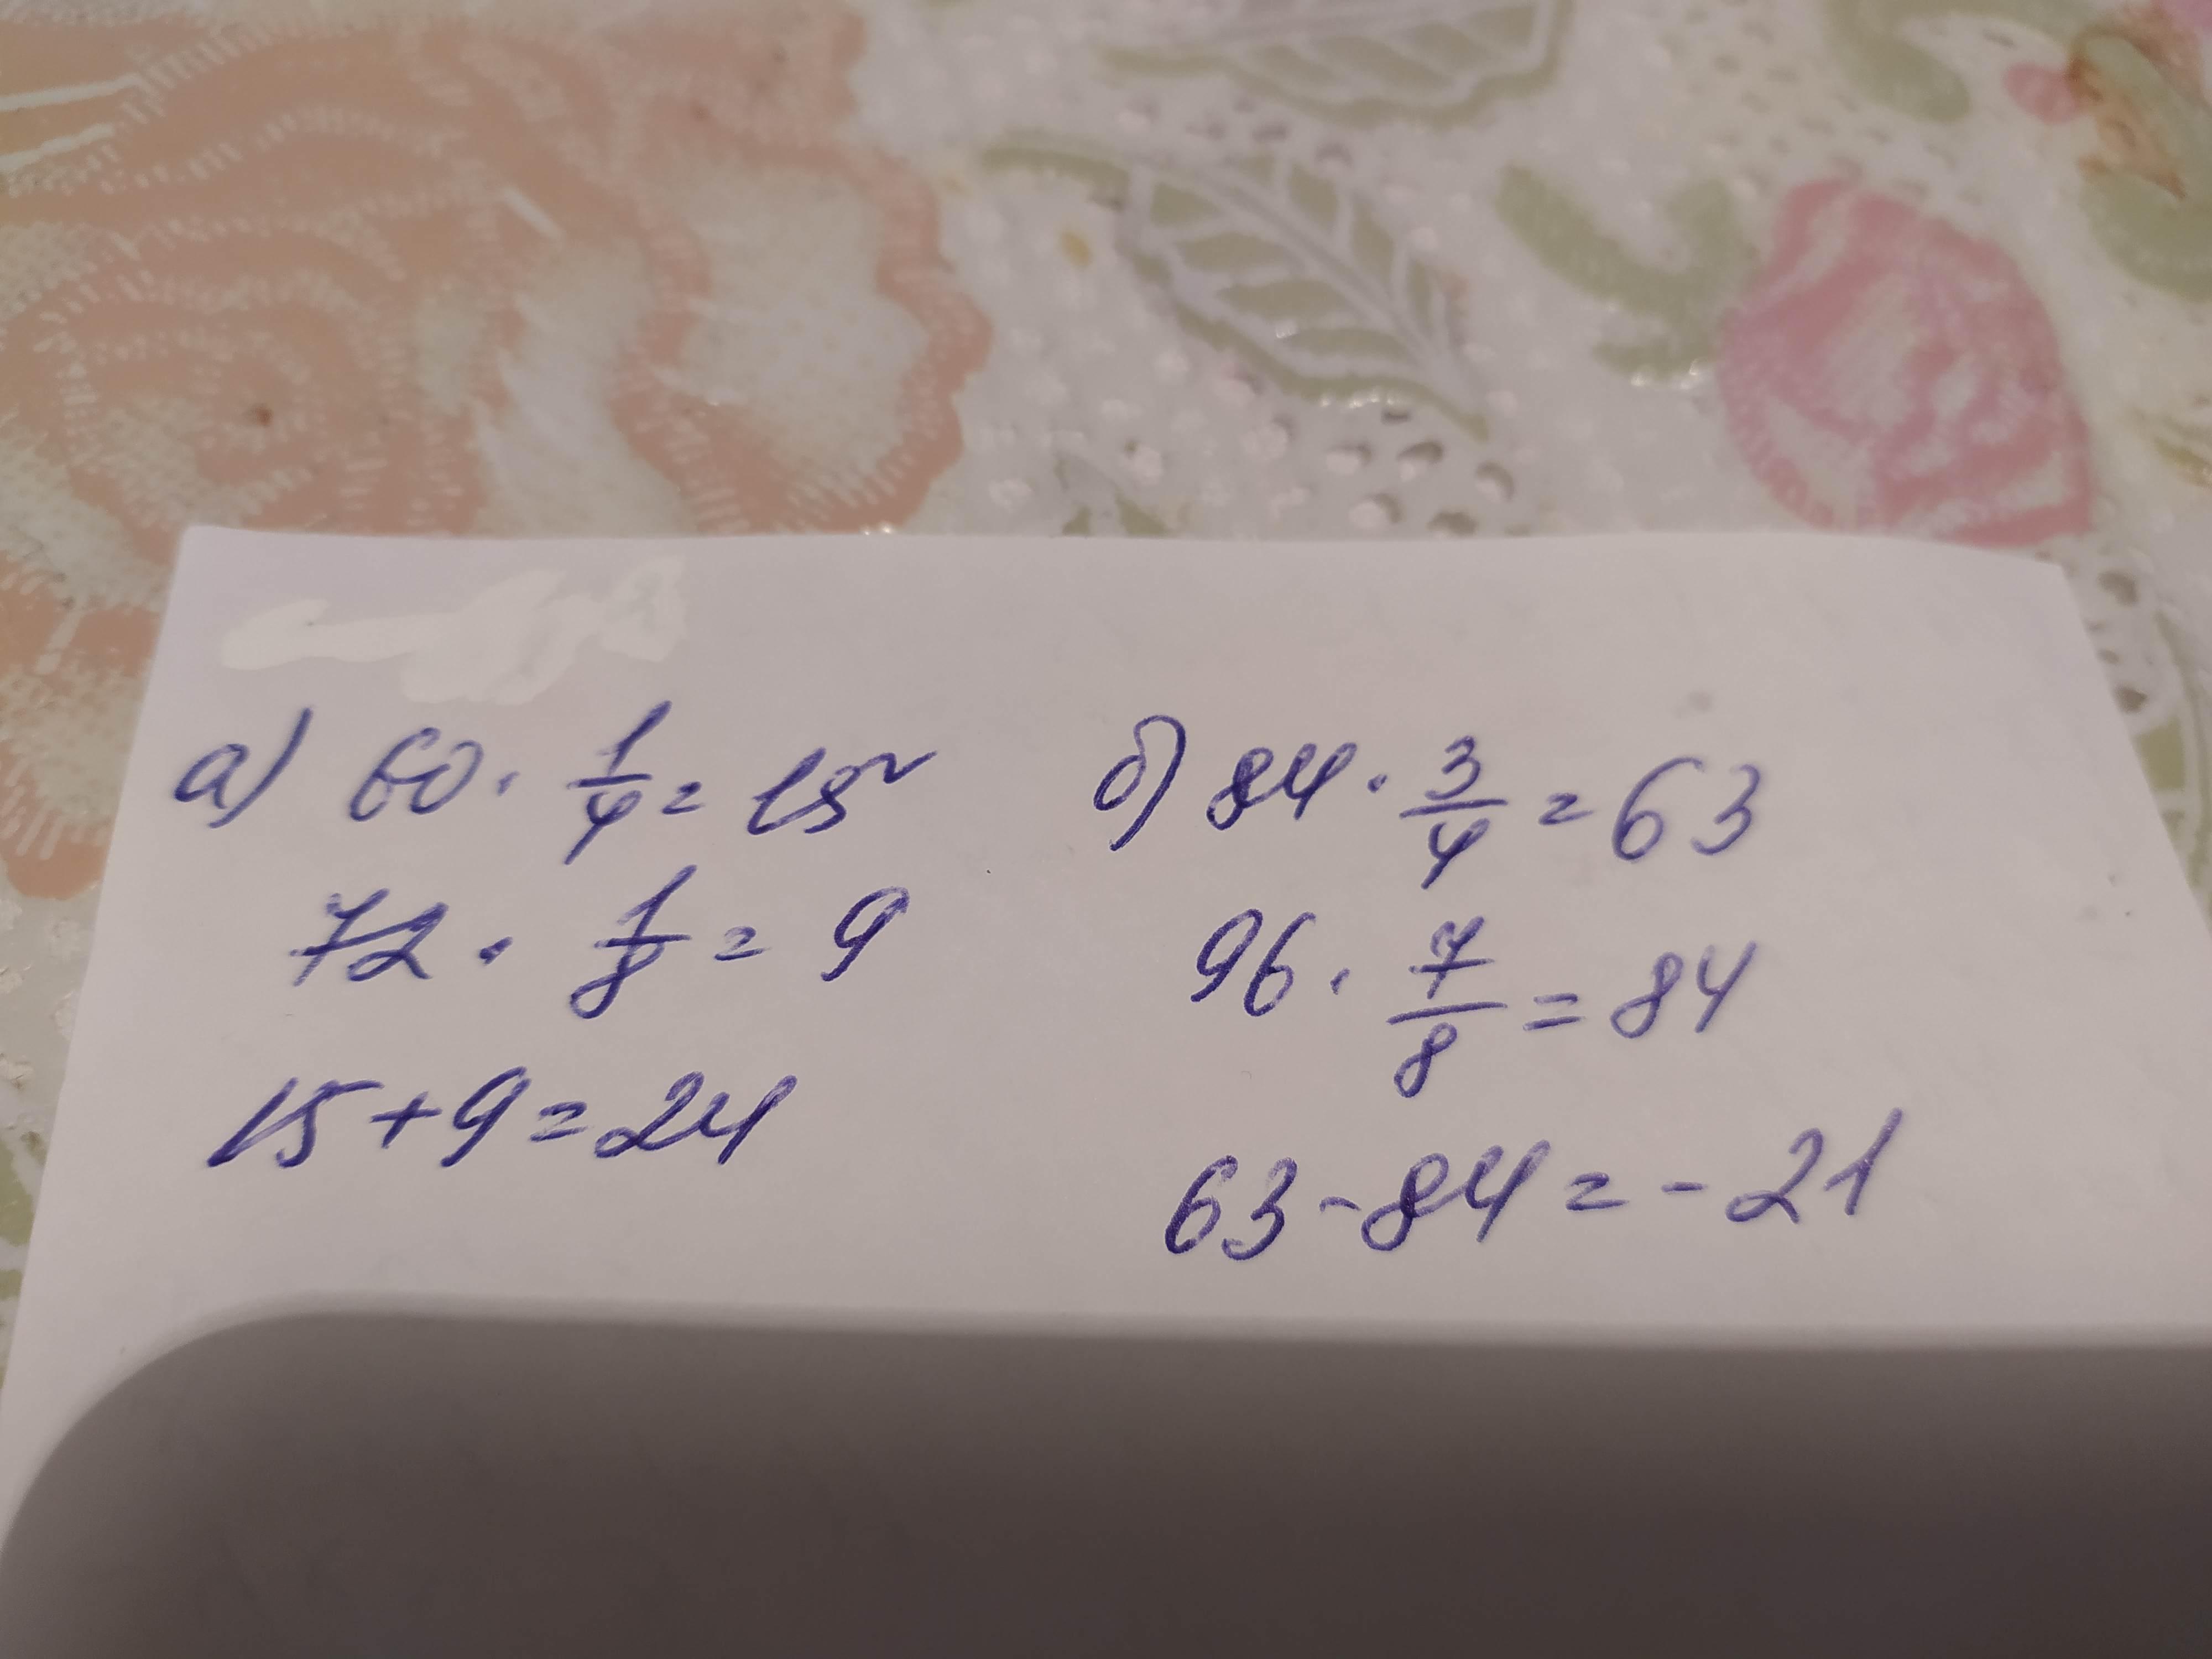 а) 60 · 1/4 = 15
72 · 1/8 = 9
15 + 9 = 24
б) 84 · 3/4 = 63
96 · 7/8 = 84
63 - 84 = - 21